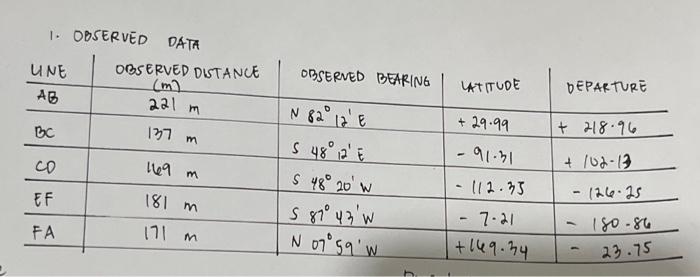 1. OBSERVED DATA
LINE OBSERVED DISTANCE (m) OBSERVED BEARING LATITUDE DEPARTURE
AB 221 m N 82° 12' E + 29.99 + 218.96
BC 137 m S 48° 12' E - 91.31 + 102.13
CD 169 m S 48° 20' W - 112.35 - 126.25
EF 181 m S 87° 43' W - 7.21 - 180.86
FA 171 m N 07° 59' W +169.34 - 23.75